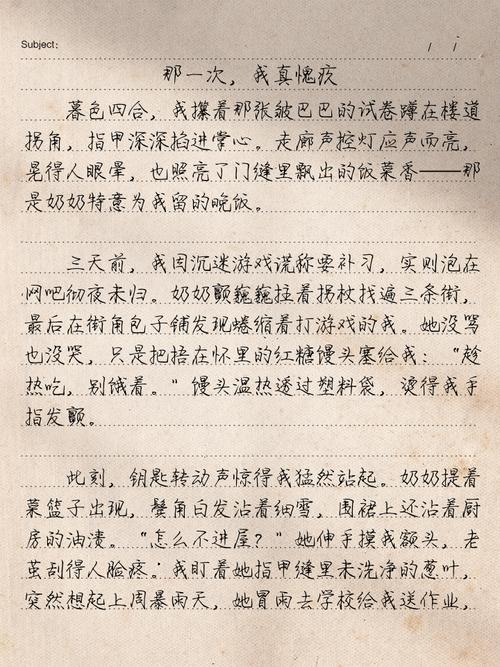 Subject:
/ /
那一次，我真愧疚
暮色四合，我攥着那张皱巴巴的试卷蹲在楼道
拐角，指甲深深掐进掌心。走廊声控灯应声而亮，
晃得人眼晕，也照亮了门缝里飘出的饭菜香——那
是奶奶特意为我留的晚饭。
三天前，我因沉迷游戏谎称要补习，实则泡在
网吧彻夜未归。奶奶颤巍巍拄着拐杖找遍三条街，
最后在街角包子铺发现蜷缩着打游戏的我。她没骂
也没哭，只是把捂在怀里的红糖馒头塞给我：“趁
热吃，别饿着。”馒头温热透过塑料袋，烫得我手
指发颤。
此刻，钥匙转动声惊得我猛然站起。奶奶提着
菜篮子出现，鬓角白发沾着细雪，围裙上还沾着厨
房的油渍。“怎么不进屋？”她伸手摸我额头，老
茧刮得人脸疼。我盯着她指甲缝里未洗净的葱叶，
突然想起上周暴雨天，她冒雨去学校给我送作业，